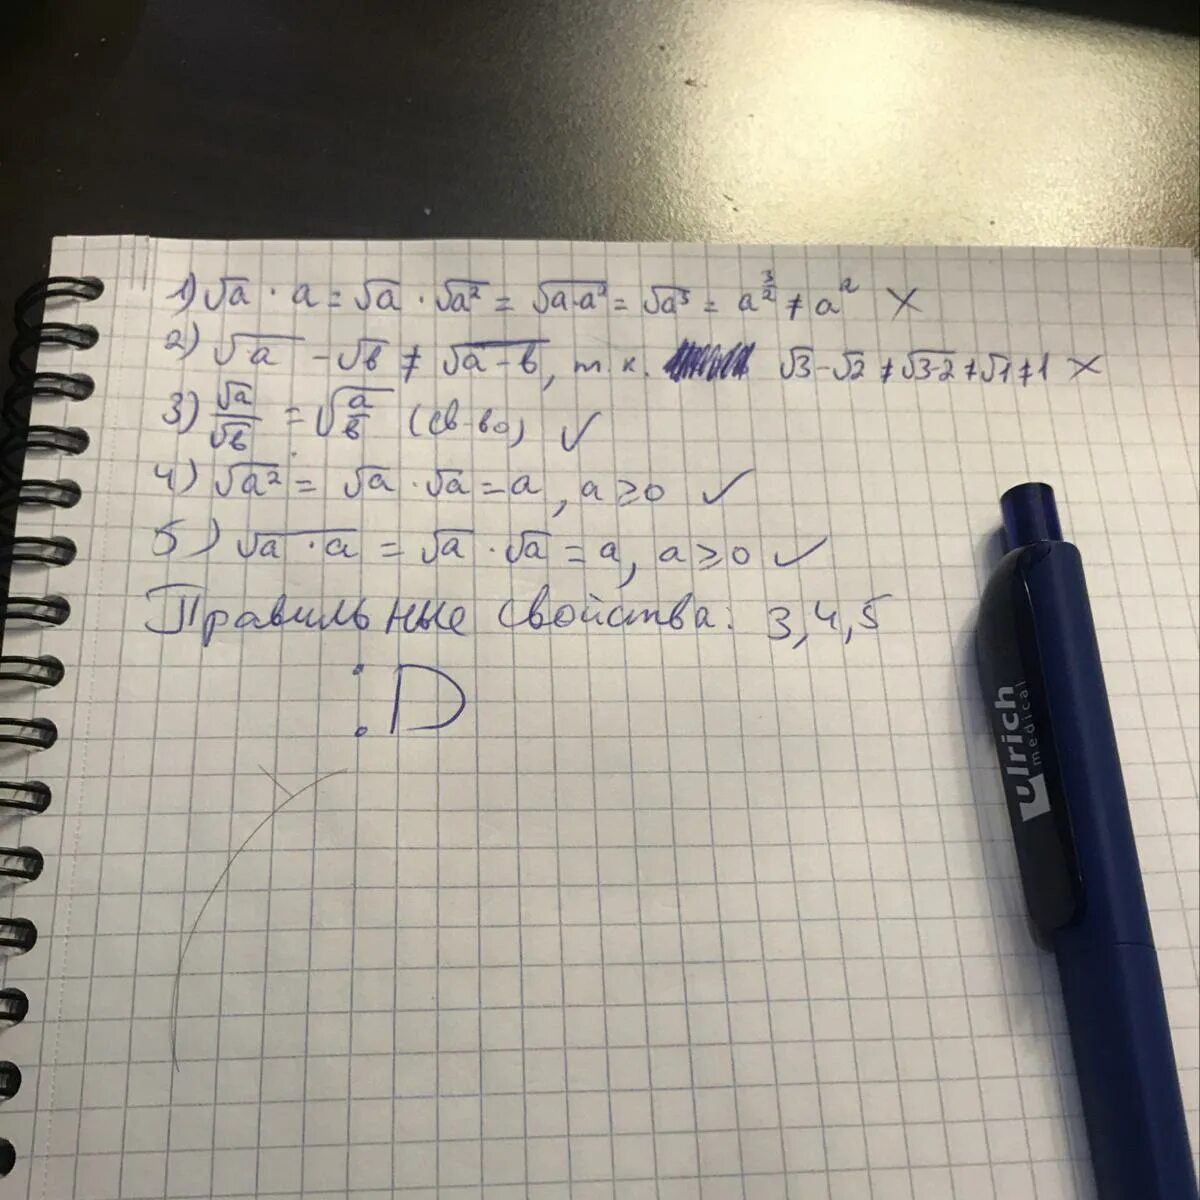 1) √a · a = √a · √a² = √a·a² = √a³ = a^(3/2) ≠ a² ×
2) √a - √b ≠ √a-b, т.к. √3-√2 ≠ √3-2 ≠ √1 ≠ 1 ×
3) √a/√b = √(a/b) (св-во) ✓
4) √a² = √a · √a = a, a ≥ 0 ✓
5) √a · a = √a · √a = a, a ≥ 0 ✓
Правильные свойства: 3,4,5
:D
ulrich
medical